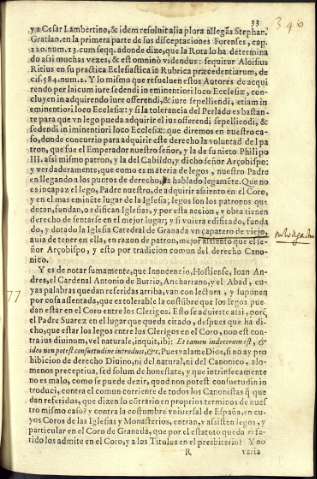 33
340
ya Cesar Lambertino, & idem resoluit alia plora allegãs Stephan.
Gratian. en la primera parte de sus disceptaciones Forenses, cap.
120. num. 23. cum seqq. adonde dize, que la Rota lo ha determina
do assi muchas vezes, & est omninò videndus: sequitur Aloisius
Ritius en su practica Ecclesiastica in Rubrica præcedentiarum, de
cis. 584. num. 2. Y lo mismo que resuelven estos Autores de acqui
rendo per laicum iure sedendi in eminentiori loco Ecclesiæ, con
cluyen in adquirendo iure offerendi, & iure psellendi, etiam in
eminentiori loco Ecclesiæ y si la tolerancia del Perlado es bastan
te para que vn lego pueda adquirir el ius offerendi sepellendi, &
sedendi in eminentiori loco Ecclesiæ: que diremos en nuestro ca-
so, donde concurrio para adquirir este derecho la voluntad de l pa
tron, que fue el Emperador nuestro señor, y la de su nieto Philipo
III. assi mismo patron, y la del Cabildo, y dicho señor Arçobispo:
y verdaderamente, que como es materia de legos, nuestro Padre
en llegando a los puntos de derecho, ha hablado legamẽte. Que no
es incapaz el lego, Padre nuestro, de adquirir assiento en el Coro,
y en el mas eminẽte lugar de la Iglesia; legos son los patronos que
dotan, fundan, o edifican Iglesias, y por esta accion, y obra tienen
derecho de sentarse en el mejor lugar; y si vuiera edificado, funda
do, y dotado la Iglesia Catedral de Granada vn çapatero de viejo,
auia de tener en ella, en razon de patron, mejor assiento que el se-
ñor Arçobispo, y esto por tradicion comun del derecho Cano-
nico.
Y es de notar sumamente, que Innocencio, Hostiense, Ioan An-
dres, el Cardenal Antonio de Butrio, Ancharrano, y el Abad, cu-
yas palabras quedan referidas arriba, van con lectura, y suponen
por cosa assentada, que es tolerable la costũbre que los legos pue-
dan estar en el Coro entre los Clerigos. Esto se aduierte assi, porq̃
el Padre Suarez en el lugar que queda citado, despues que ha di-
cho, que estar los legos entre los Clerigos en el Coro, non est con-
tra ius diuinum, vel naturale, inquit, ibi: Et tamen indecorum est, &
ideo non potest consuetudine introduci, &c. Pues vale ats Dios, si no ay pro
hibicion de derecho Diuino, ni del natural, ni del Canonico, a lo-
menos preceptiua, sed solum de honestate, y que intrinsecamente
no es malo, como se puede dezir, quod non potest consuetudin in
troduci, contra el comun corriente de todos los Canonistas q̃ que
dan referidos, que dizen lo cõtrario en proprios terminos de nues
tro mismo caso? y contra la costumbre vniuersal de España, en cu-
yos Coros de las Iglesias y Monasterios, entran, y assisten legos, y
particular en el Coro de Granada, que por el estatuto queda refe-
rido los admite en el Coro, y a los Titulos en el presbiterio? Y no
R
varia
77